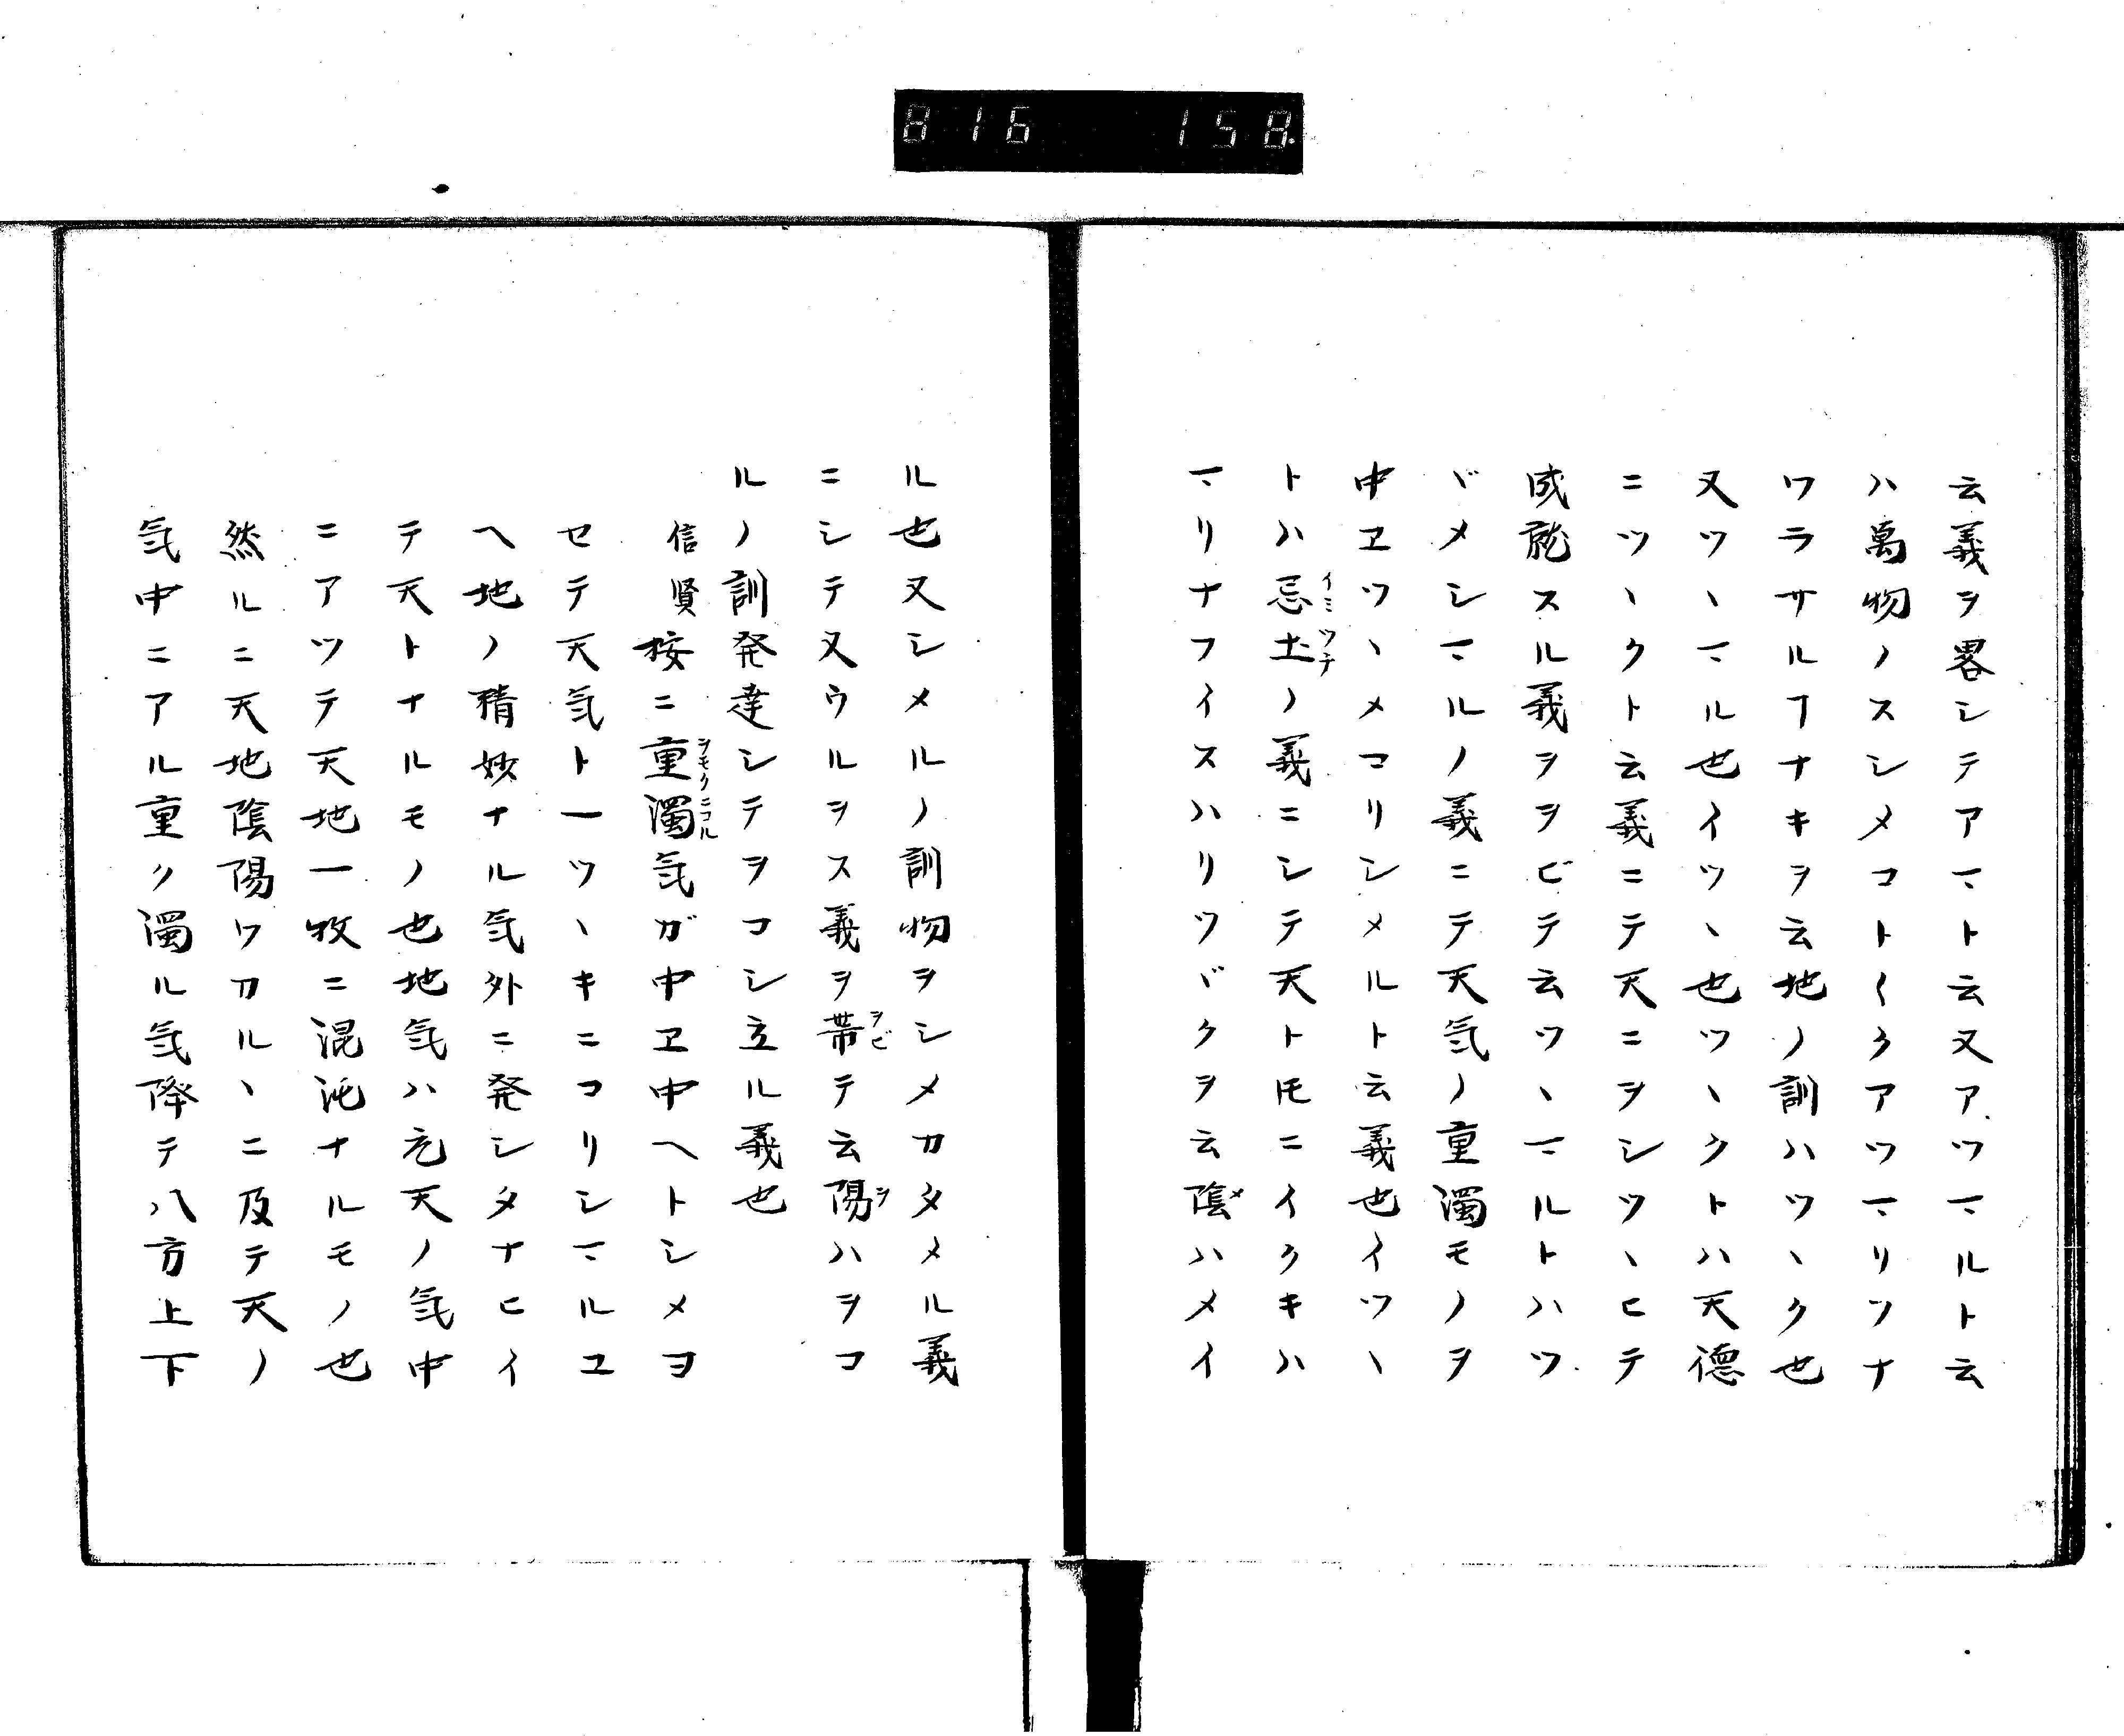 816 158
云義ヲ畧シテアマト云又アツマルト云
ハ萬物ノスシメコトイクアツマリツナ
ワラサルヿナキヲ云地ノ訓ハツヽク也
又ツヽマル也イツヽ也ツヽクトハ天德
ニツヽクト云義ニテ天ニヲシツヽヒテ
成就スル義ヲヲビテ云ツヽマルトハツ
ヾメシマルノ義ニテ天気ノ重濁モノヲ
中ヱツヽメコリシメルト云義也イツヽ
トハ忌土ノ義ニシテ天トㇳモニイクキハ
イミツチ
マリナフイスハリツヾクヲ云陰ハメイ
メ
ル也又シメルノ訓物ヲシメカタメル義
ニシテ又ウルヲス義ヲ帯テ云陽ハヲコ
ヲビ
ヲ
ルノ訓発達シテヲコシ立ル義也
信賢按ニ重濁気ガ中ヱ中ヘトシメヨ
ヲモクニコル
セテ天気ト一ツヽキニコリシマルユ
ヘ地ノ精妙ナル気外ニ発シタナヒイ
テ天トナルモノ也地気ハ元天ノ気中
ニアツテ天地一牧ニ混沌ナルモノ也
然ルニ天地陰陽ワカルヽニ及テ天ノ
気中ニアル重ク濁ル気降テ八方上下